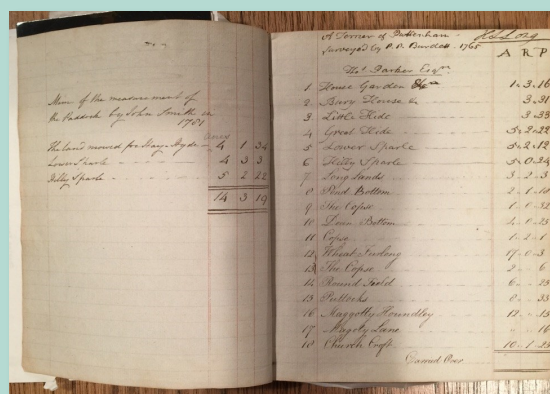 Mem of the measurement of
the Paddock by John Smith in
1781
Acres
The land mowed for Hay - Hyde - 4 1 34
Lower Sparle - - - 4 3 3
Hilly Sparle - - - 5 2 22
14 3 19
A Terrier of Puttenham -
Surveyed by P. P. Burdett - 1765
A R P
Thos. Parker Esqr
1 House Garden &c 1 - 3 - 16
2 House 3 31
3 Little Hide 3 33
4 Great Hide 5 - 2 - 22
5 Lower Sparle 5 - 2 - 12
6 Hilly Sparle 5 - 0 - 34
7 Long Lands 3 - 2 - 3
8 Pond Bottom 2 - 1 - 18
9 The Copse 1 - 0 - 32
10 Down Bottom 4 - 0 - 23
11 Copse 1 - 2 - 1
12 Wheat Furlong 17 - 0 - 3
13 The Copse 2 - - 6
14 Round Field 6 - - 23
15 Puttocks 33
16 Maggotty Houndley 12 - - 13
17 Lane 16
18 Church Croft 10 - 1 - 23
Carried Over